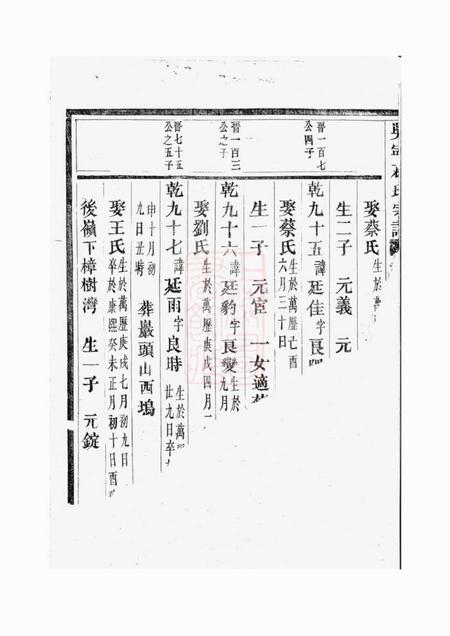 氏宗譜
娶蔡氏 生於萬
生二子 元義 元
晉一百七公四子
乾九十五 諱廷佳字良
娶蔡氏 生於萬歷己酉六月三十日
生一子 元宦 一女適
晉一百三公之子
乾九十六 諱廷豹字良變 生於九月
娶劉氏 生於萬歷庚戌四月
晉七十五公之五子
乾九十七 諱廷雨字良時 生於萬廿九日卒
申十月初九日丑時 葬巖頭山西塢
娶王氏 生於萬歷庚戌七月初九日卒於康熙癸未正月初十日酉
後嶺下樟樹灣 生一子 元錠